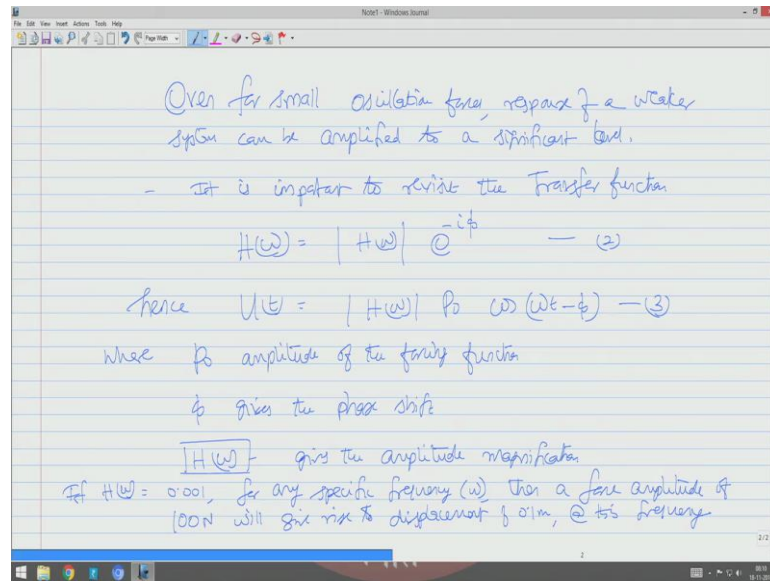 Note1 - Windows Journal
File Edit View Insert Actions Tools Help
Page Width
Oven for small oscillation forces, response of a weaker
system can be amplified to a significant level.
- It is important to revisit the Transfer function
H(ω) = |H(ω)| e^{-iφ} — (2)
hence U(t) = |H(ω)| P₀ cos (ωt-φ) — (3)
where P₀ amplitude of the forcing function
φ gives the phase shift
|H(ω)| - gives the amplitude magnification
If H(ω) = 0.001, for any specific frequency (ω), then a force amplitude of
100N will give rise to displacement of 0.1m, @ this frequency
2/2
2
08:10